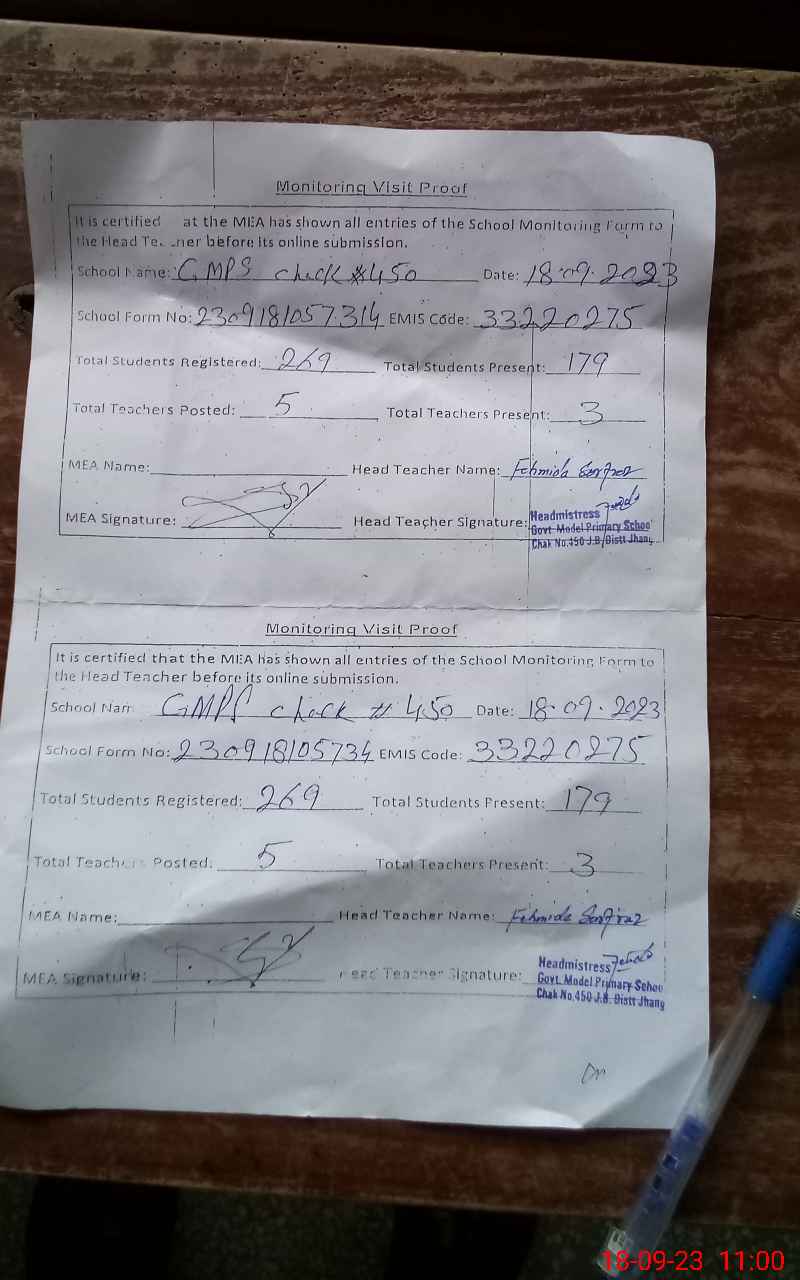 Monitoring Visit Proof
It is certified at the MEA has shown all entries of the School Monitoring Form to
the Head Te. .ner before its online submission.
School Name: GMPS chack #450 Date: 18.09.2023
School Form No: 2309181057314 EMIS Code: 33220275
Total Students Registered: 269 Total Students Present: 179
Total Teachers Posted: 5 Total Teachers Present: 3
MEA Name: Head Teacher Name: Fehmida Sarfraz
MEA Signature: Head Teacher Signature:
Headmistress
Govt. Model Primary Schoo
Chak No.450 J.B. Distt Jhang
Monitoring Visit Proof
It is certified that the MEA has shown all entries of the School Monitoring Form to
the Head Teacher before its online submission.
School Nam GMPS chack # 450 Date: 18.09.2023
School Form No: 230918105734 EMIS Code: 33220275
Total Students Registered: 269 Total Students Present: 179
Total Teachers Posted: 5 Total Teachers Present: 3
MEA Name: Head Teacher Name: Fehmida Sarfraz
MEA Signature: Head Teacher Signature:
Headmistress
Govt. Model Primary Schoo
Chak No.450 J.B. Distt Jhang
18-09-23 11:00